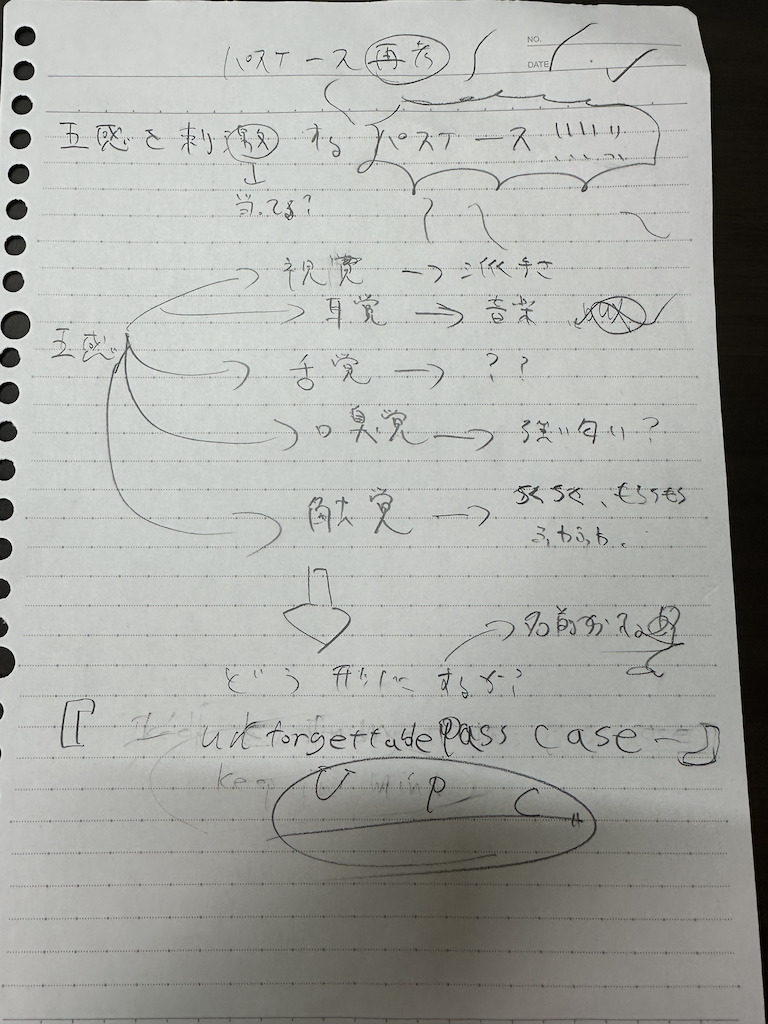 NO.
DATE
パスケース 再考
五感を刺激する パスケース !!!!!!
当ってる?
五感
視覚 → 派手さ
耳覚 → 音楽
舌覚 → ??
口臭覚 → 強い匂い?
触覚 → ちくちく、もちもち
ふわふわ。
名前が
どう形にするか?
『unforgettable Pass case~』
keep
U P C "